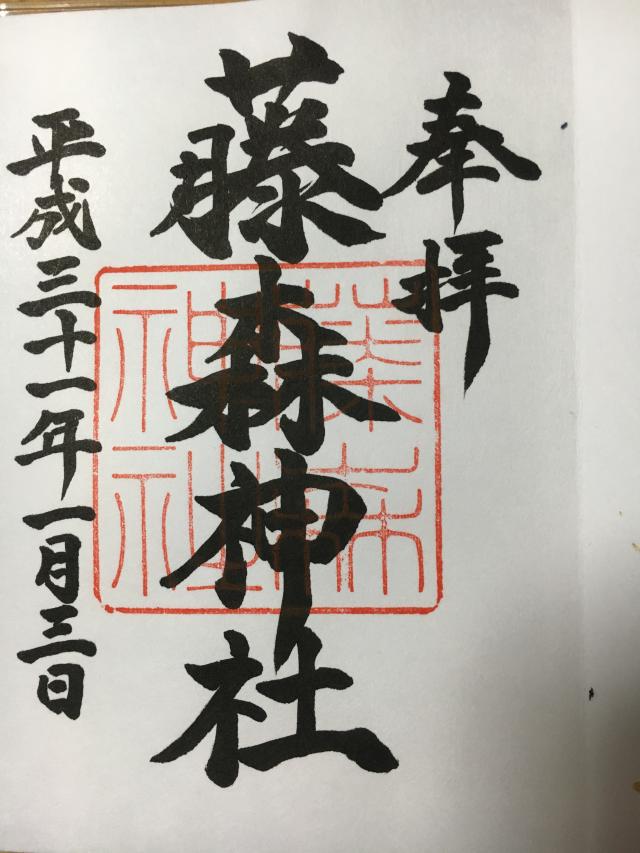 奉拝
藤森神社
平成三十一年一月三日